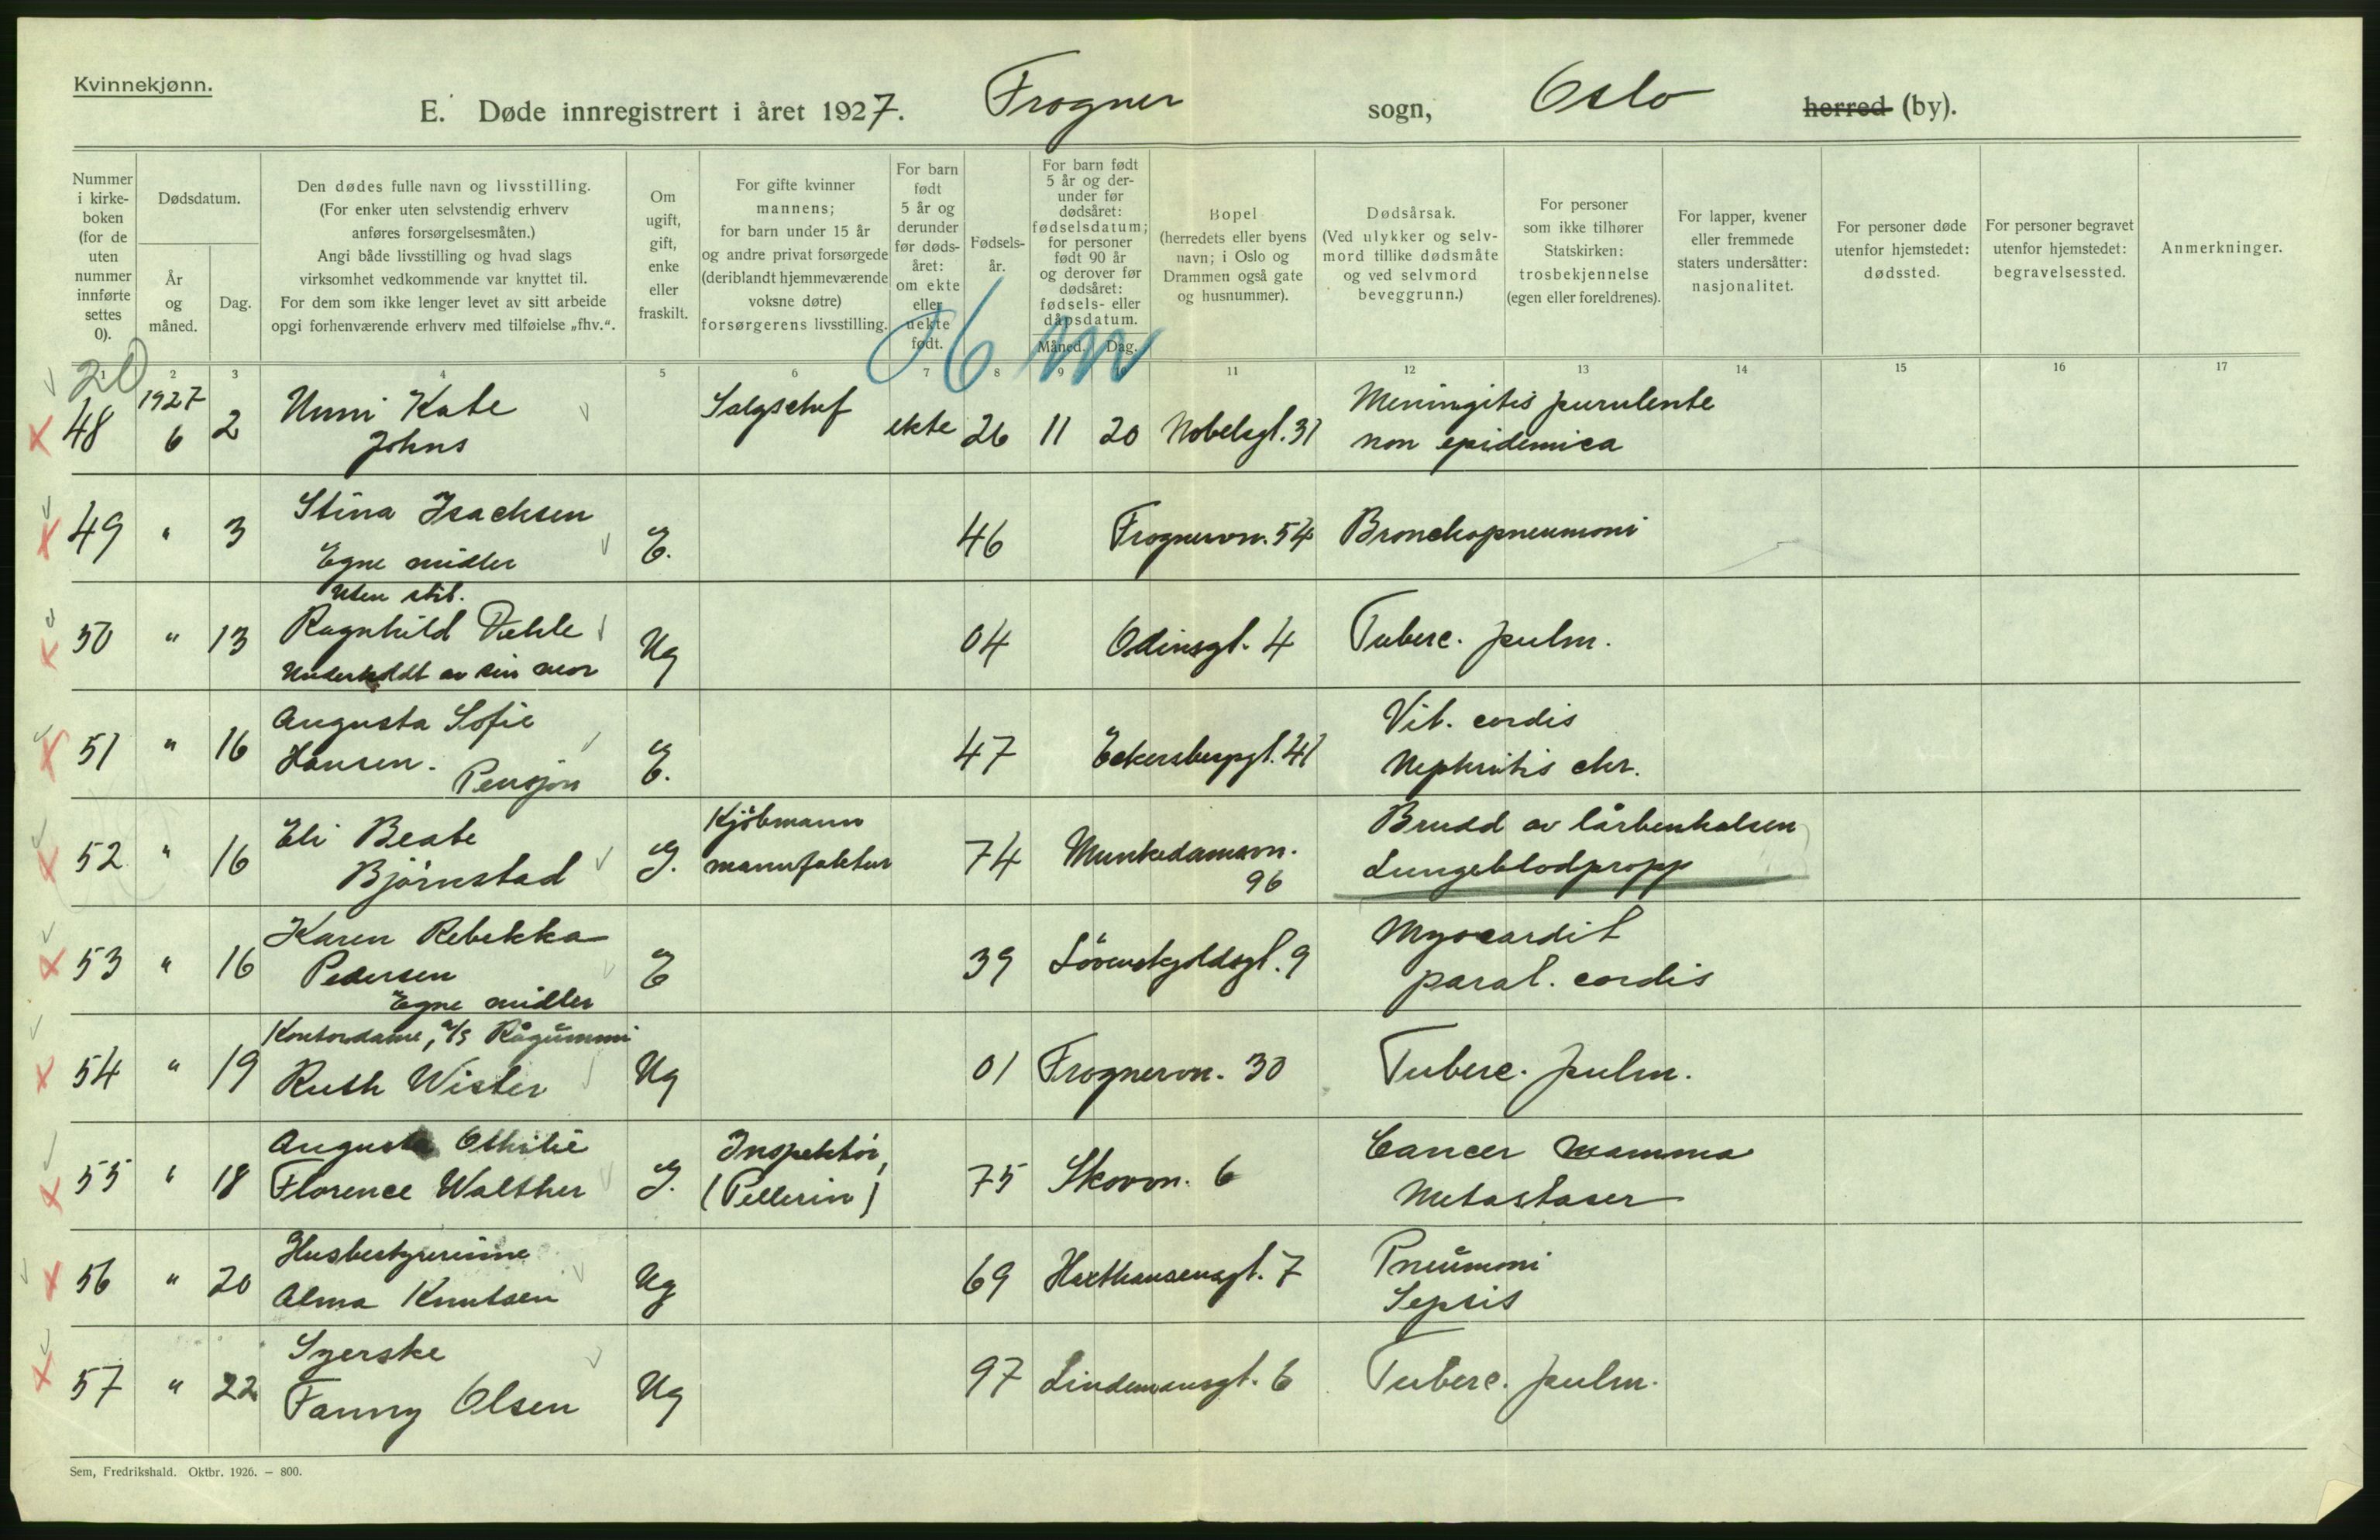 Kvinnekjønn.
E. Døde innregistrert i året 1927. Frogner sogn, Oslo herred (by).
Nummer i kirke-boken (for de uten nummer innførte settes 0).
Dødsdatum.
År og måned.
Dag.
Den dødes fulle navn og livsstilling.
(For enker uten selvstendig erhverv
anføres forsørgelsesmåten.)
Angi både livsstilling og hvad slags
virksomhet vedkommende var knyttet til.
For dem som ikke lenger levet av sitt arbeide
opgi forhenværende erhverv med tilføielse „fhv.“.
Om
ugift,
gift,
enke
eller
fraskilt.
For gifte kvinner
mannens;
for barn under 15 år
og andre privat forsørgede
(deriblandt hjemmeværende
voksne døtre)
forsørgerens livsstilling.
For barn
født
5 år og
derunder
før døds-
året:
om ekte
eller
uekte
født.
Fødsels-
år.
For barn født
5 år og der-
under før
dødsåret:
fødselsdatum;
for personer
født 90 år
og derover før
dødsåret:
fødsels- eller
dåpsdatum.
Måned. Dag.
Bopel
(herredets eller byens
navn; i Oslo og
Drammen også gate
og husnummer).
Dødsårsak.
(Ved ulykker og selv-
mord tillike dødsmåte
og ved selvmord
beveggrunn.)
For personer
som ikke tilhører
Statskirken:
trosbekjennelse
(egen eller foreldrenes).
For lapper, kvener
eller fremmede
staters undersåtter:
nasjonalitet.
For personer døde
utenfor hjemstedet:
dødssted.
For personer begravet
utenfor hjemstedet:
begravelsessted.
Anmerkninger.
1 2 3 4 5 6 7 8 9 10 11 12 13 14 15 16 17
20
48 1927 6 2 Unni Kate Johns Salgschef ekte 26 11 20 Nobelsgt. 31 Meningitis purulente
non epidemica
49 " 3 Stina Isachsen
Egne midler E. 46 Frognervn. 54 Bronchopneumoni
Uten stil.
50 " 13 Ragnhild Dæhle Ug 04 Odinsgt. 4 Tuberc. pulm.
Underholdt av sin mor
51 " 16 Augusta Sofie
Hansen. Pensjon E. 47 Eckersbergsgt. 41 Vit. cordis
Nephritis chr.
52 " 16 Eli Beate
Björnstad G. Kjöbmann
manufaktur 74 Munkedamsvn.
96 Brudd av lårbenhalsen
Lungeblodpropp
53 " 16 Karen Rebekka
Pedersen
Egne midler E 39 Lövenskjoldsgt. 9 Myocardit
paral. cordis
Kontordame, A/S Rågummi
54 " 19 Ruth Wister Ug 01 Frognervn. 30 Tuberc. pulm.
55 " 18 Augusta Othilie
Florence Walther G. Inspektör,
(Pellerin) 75 Skovvn. 6 Cancer mamma
Metastaser
Husbestyrerinne
56 " 20 Alma Knutsen Ug 69 Haxthausensgt. 7 Pneumoni
Sepsis
Syerske
57 " 22 Fanny Olsen Ug 97 Lindemansgt. 6 Tuberc. pulm.
Sem, Fredrikshald. Oktbr. 1926. – 800.